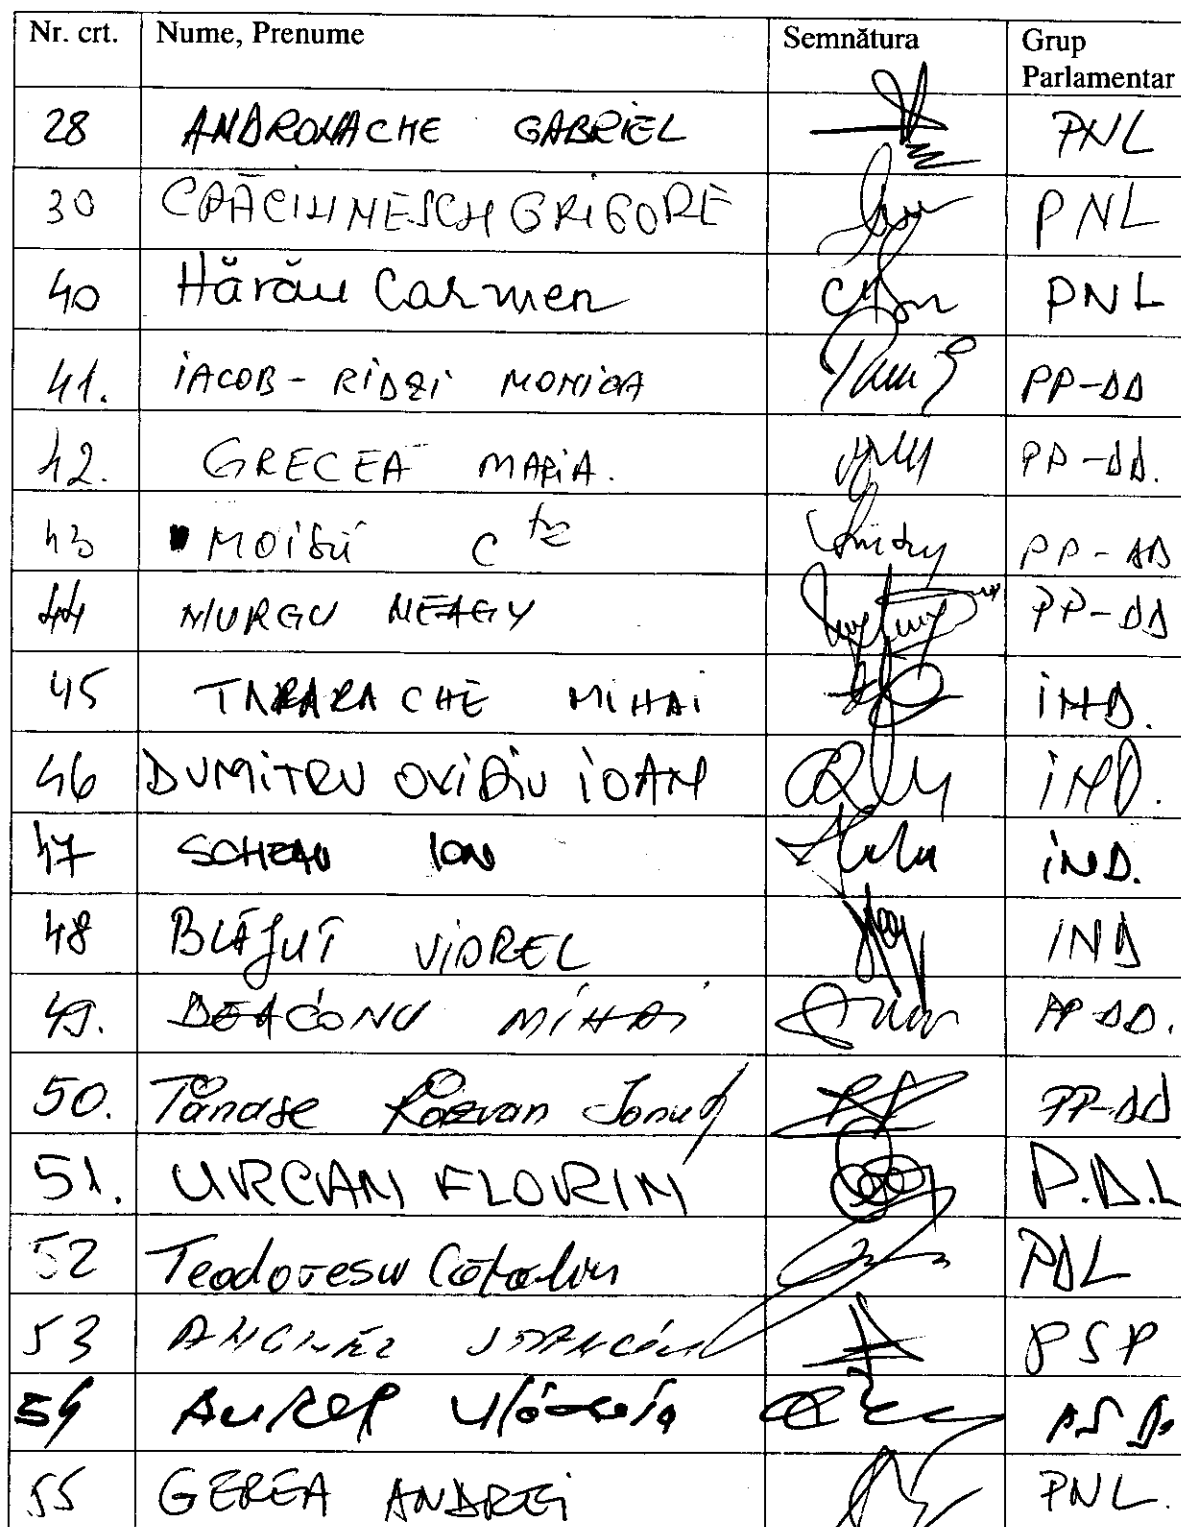 Nr. crt. Nume, Prenume Semnătura Grup Parlamentar
28 ANDRONACHE GABRIEL PNL
30 CRĂCIUNESCU GRIGORE PNL
40 Hărău Carmen PNL
41. IACOB-RIDZI MONICA PP-DD
42. GRECEA MARIA. PP-DD.
43 MOISII C PP-DD
44 MURGU NEAGU PP-DD
45 TARARACHE MIHAI IND.
46 DUMITRU OVIDIU IOAN IND.
47 SCHEAU ION IND.
48 BLĂJUȚ VIOREL IND
49. DEACONU MIHAI PP-DD.
50. Tănase Răzvan Ionuț PP-DD
51. URCAN FLORIN P.D.L
52 Teodorescu Cătălin PDL
53
54 Aurel Vlădoiu
55 GEREA ANDREI PNL.